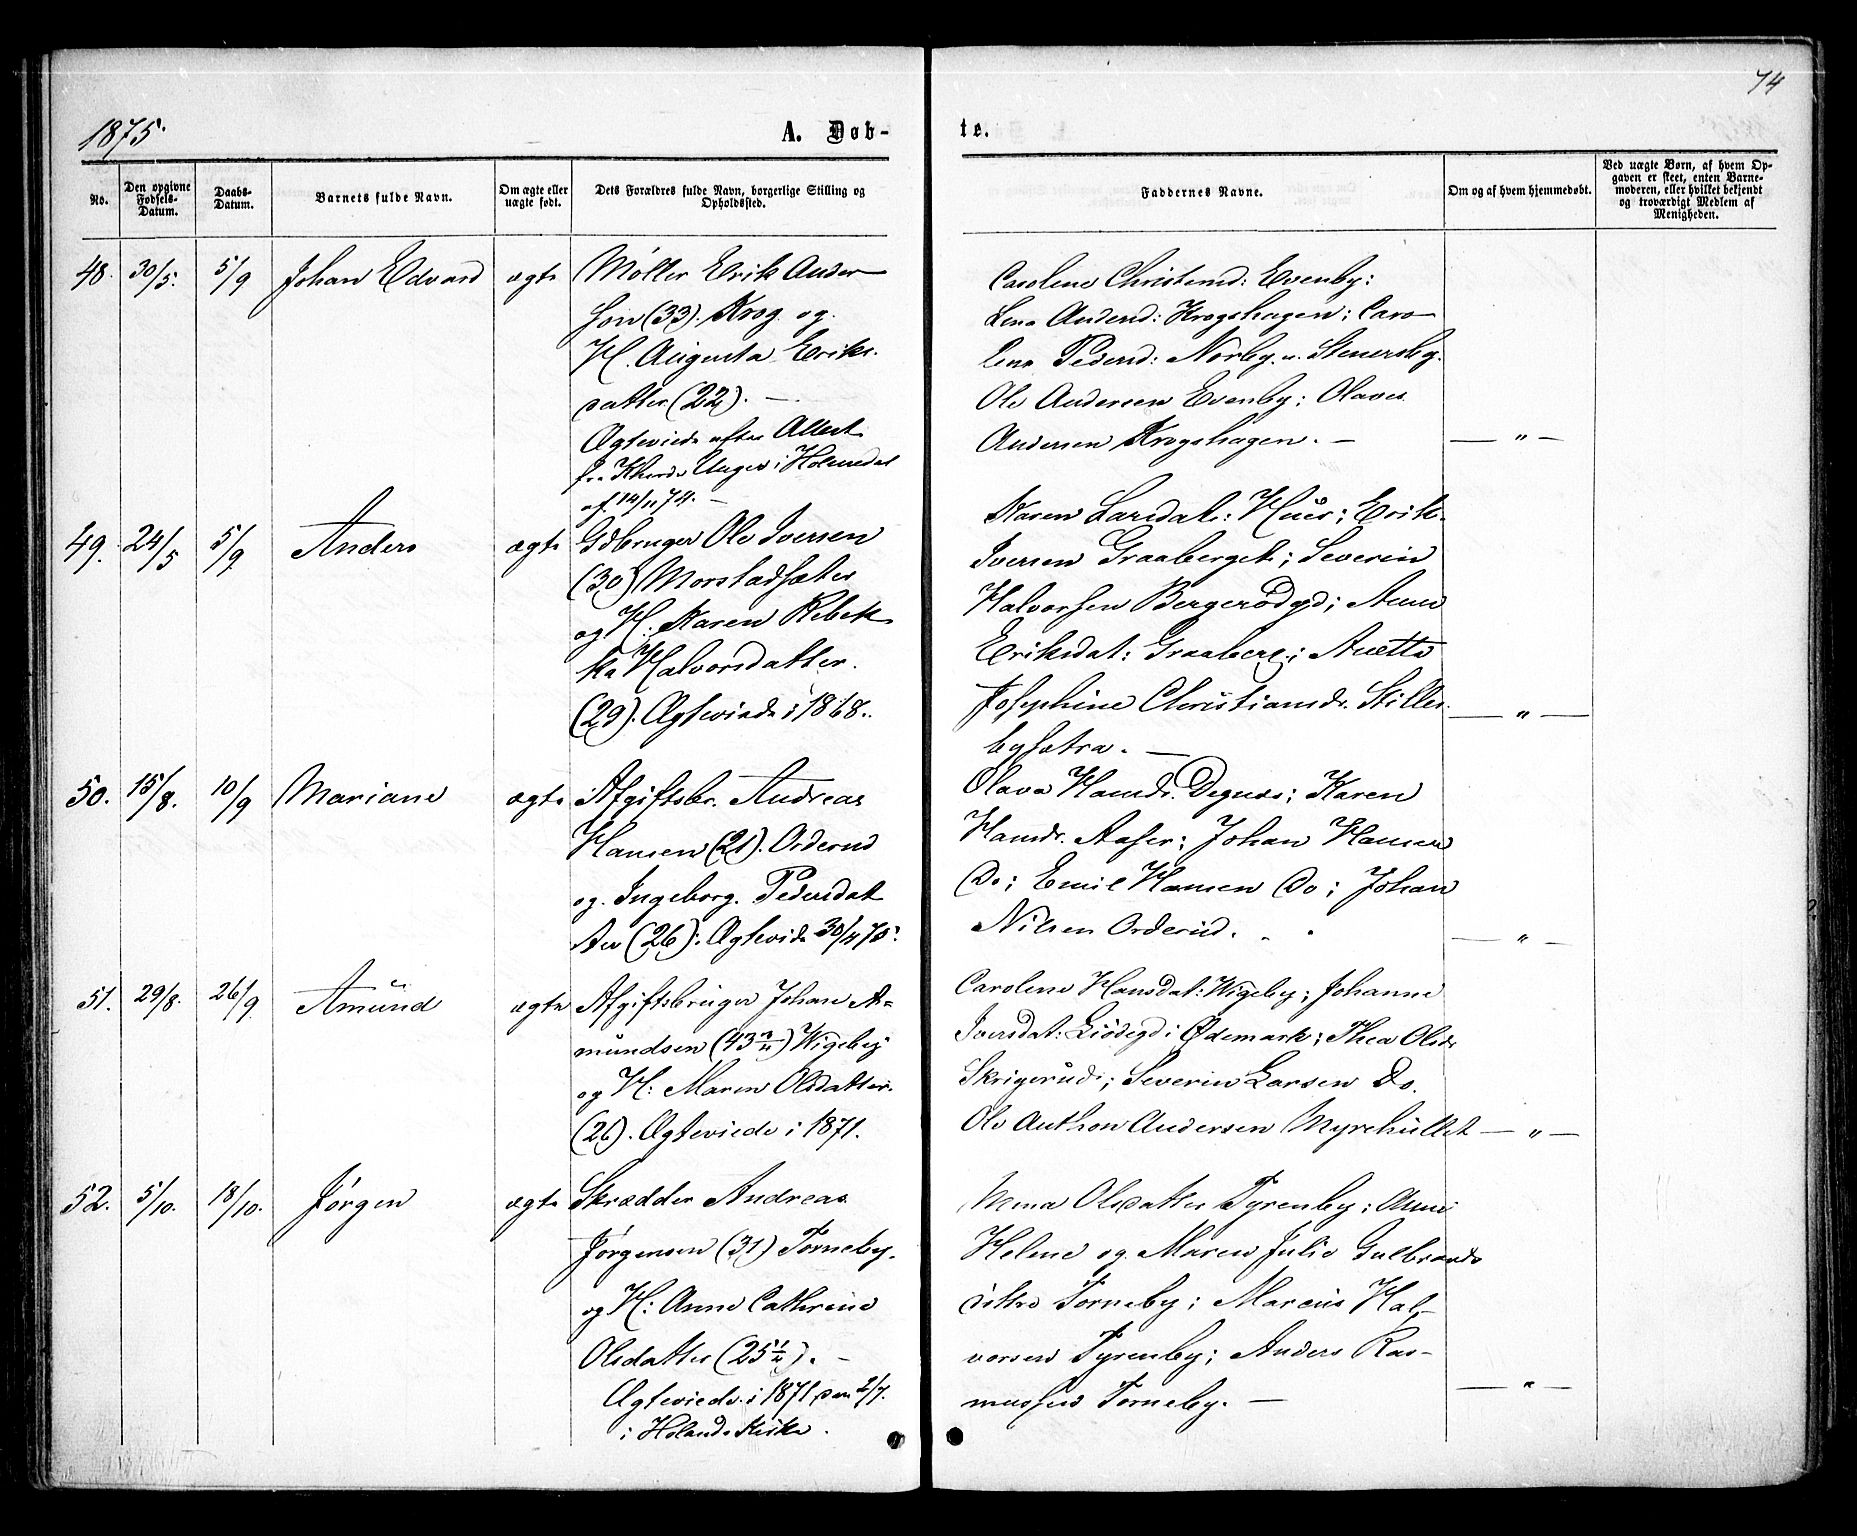 74
1875.
A. Døb-
te.
No.
Den opgivne Fødsels-Datum.
Daabs-Datum.
Barnets fulde Navn.
Om ægte eller uægte født.
Dets Forældres fulde Navn, borgerlige Stilling og Opholdssted.
Faddernes Navne.
Om og af hvem hjemmedøbt.
Ved uægte Børn, af hvem Op-
gaven er skeet, enten Barne-
moderen, eller hvilket bekjendt
og troværdigt Medlem af
Menigheden.
48. 30/5. 5/9 Johan Edvard ægte
Møller Erik Ander
son (33). Krog og
H. Augusta Eriks
datter (22). —
Ægteviede efter Attest
fra Unger i Holmedal
af 14/11 74. —
Carolene Christensd: Evenby:
Lena Andersd: Krogshagen; Caro
lena Pedersd: Norby. u. Stenersby.
Ole Andersen Evenby; Olaves
Andersen Krogshagen. — — „ —
49. 24/5 5/9 Anders ægte
Gdbruger Ole Iversen
(30) Morstadsæter
og H. Karen Rebek
ka Halvorsdatter.
(29). Ægteviede i 1868.
Karen Larsdat: Huer; Erik
Iversen Graaberget; Severin
Halvorsen Bergerødgd; Anne
Eriksdat: Graaberg; Anette
Josephine Christiansdr. Stiller
bysætra. — — „ —
50. 15/8. 10/9 Mariane ægte
Afgiftsbr. Andreas
Hansen (21). Orderud
og Ingeborg Pedersdat
ter (26). Ægtevide 30/4 75.
Olava Hansdr. Degnæs; Karen
Hansdr. Aaser; Johan Hansen
Do; Emil Hansen Do; Johan
Nilsen Orderud. — „ —
51. 29/8. 26/9 Amund ægte
Afgiftsbruger Johan A-
mundsen (43) Wigeby
og H: Maren Olsdatter.
(26). Ægteviede i 1871.
Carolene Hansdat: Wigeby; Johanne
Iversdat: Liødegd i Ødemark; Thea Olsdr
Skrigerud; Severin Larsen Do.
Ole Anthon Andersen Myrehullet — „ —
52. 5/10. 18/10. Jørgen ægte
Skrædder Andreas
Jørgensen (31) Torneby.
og H: Anne Cathrine
Olsdatter (25 1/4). —
Ægteviede i 1871 den 2/7.
i Hølands Kirke.
Olsdatter Tyrenby; Anne
Helene og Maren Julie Gulbrands
døttre Torneby; Marcus Hal-
vorsen Tyrenby; Anders Ras-
mussen Torneby. — — „ —